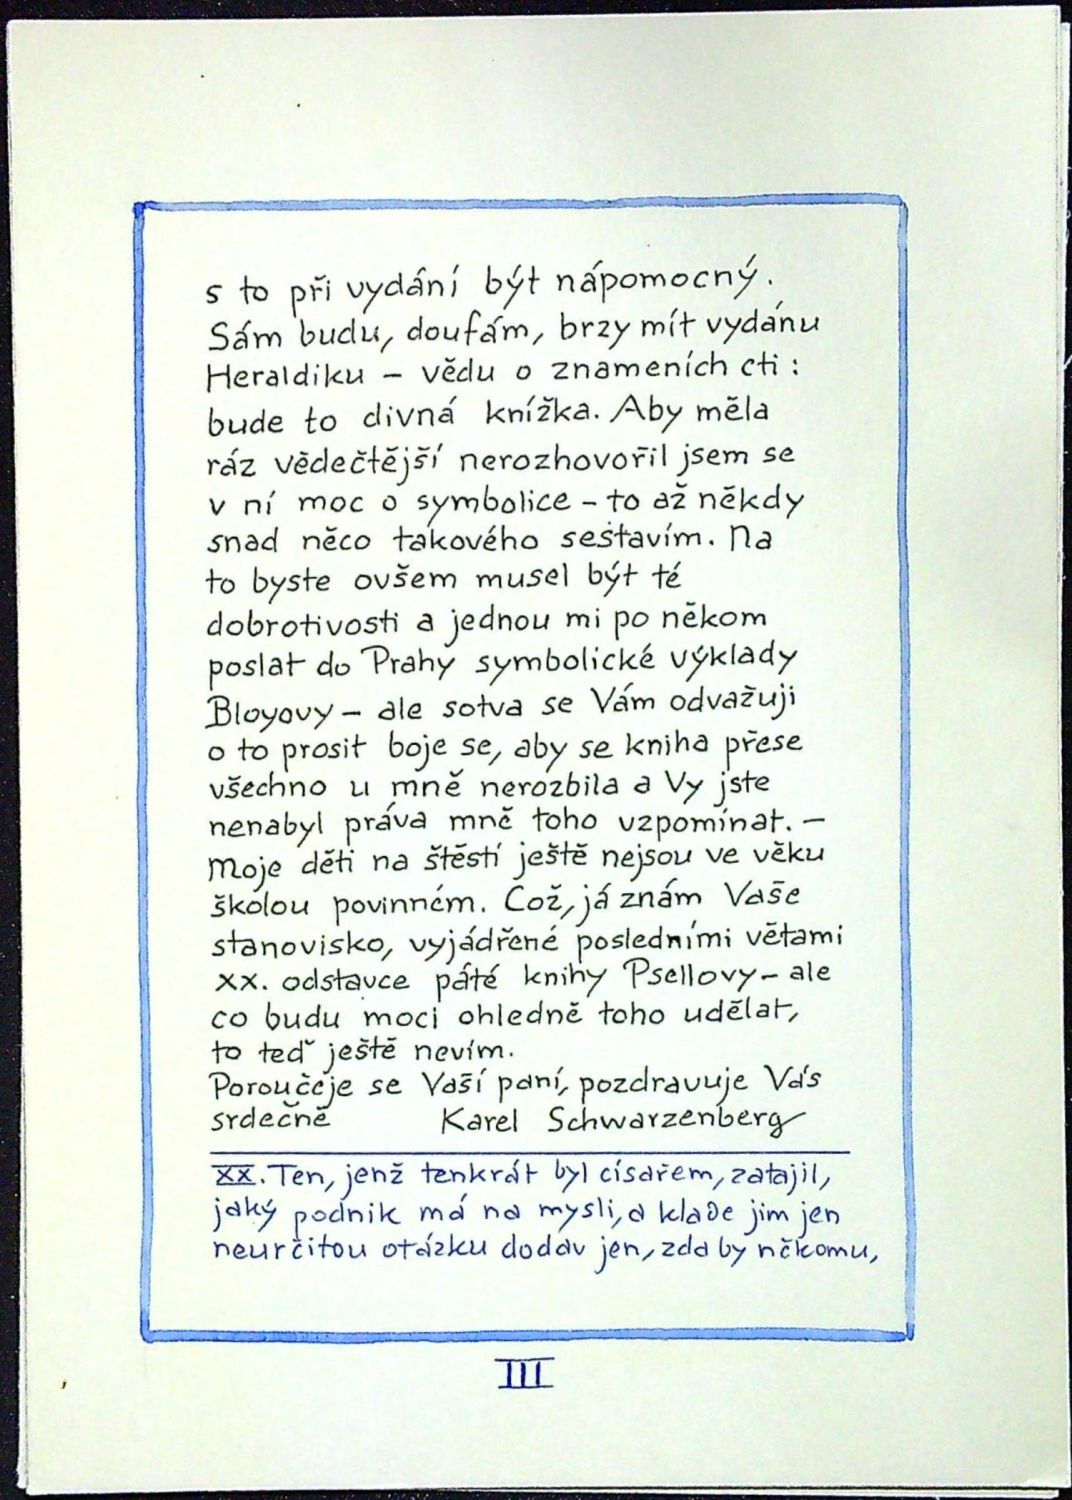 s to při vydání být nápomocný.
Sám budu, doufám, brzy mít vydánu
Heraldiku – vědu o znameních cti :
bude to divná knížka. Aby měla
ráz vědečtější nerozhovořil jsem se
v ní moc o symbolice – to až někdy
snad něco takového sestavím. Na
to byste ovšem musel být té
dobrotivosti a jednou mi po někom
poslat do Prahy symbolické výklady
Bloyovy – ale sotva se Vám odvažuji
o to prosit boje se, aby se kniha přese
všechno u mně nerozbila a Vy jste
nenabyl práva mně toho vzpomínat. –
Moje děti na štěstí ještě nejsou ve věku
školou povinném. Což, já znám Vaše
stanovisko, vyjádřené posledními větami
XX. odstavce páté knihy Psellovy – ale
co budu moci ohledně toho udělat,
to teď ještě nevím.
Poroučeje se Vaší paní, pozdravuje Vás
srdečně Karel Schwarzenberg
XX. Ten, jenž tenkrát byl císařem, zatajil,
jaký podnik má na mysli, a klade jim jen
neurčitou otázku dodav jen, zda by někomu,
III